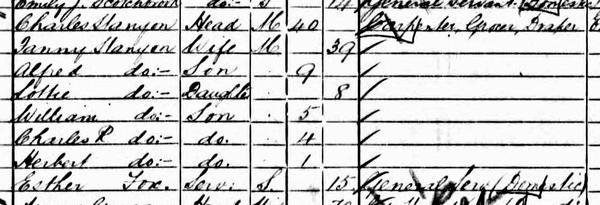 Emily J. do:- S 14 General Servant (Domestic
Charles Stanyon Head M 40 Carpenter, Grocer, Draper
Fanny Stanyon Wife M 39
Alfred do:- Son 9
Lottie do:- Daughter 8
William do:- Son 5
Charles P do:- do. 4
Herbert do:- do. 1
Esther Fox. Serv: S. 15 General Serv (Domestic)